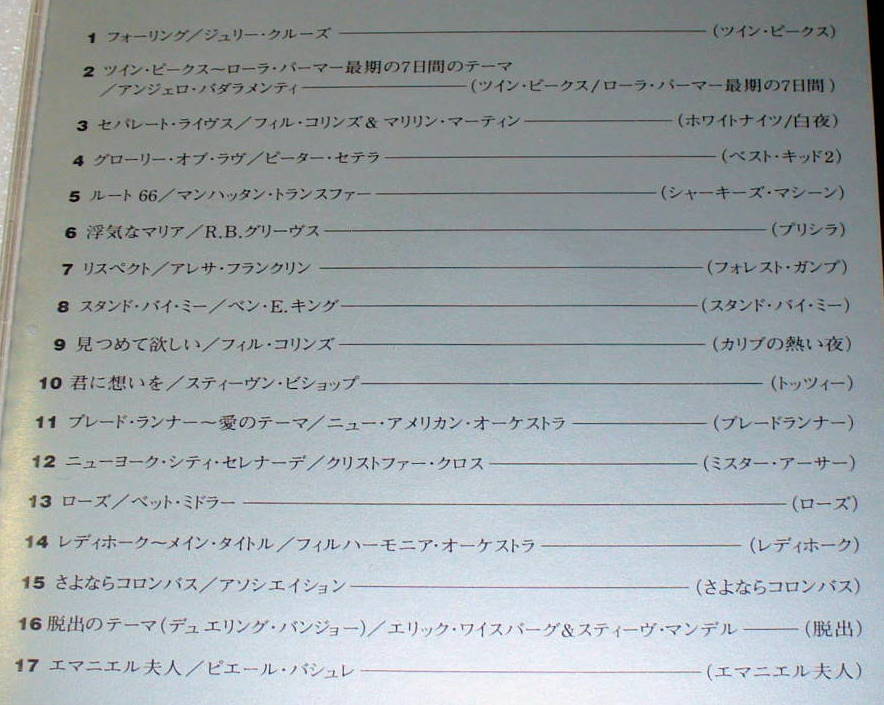 1 フォーリング／ジュリー・クルーズ ―――― (ツイン・ピークス)
2 ツイン・ピークス～ローラ・パーマー最期の7日間のテーマ
／アンジェロ・バダラメンティ ―――― (ツイン・ピークス/ローラ・パーマー最期の7日間)
3 セパレート・ライヴス／フィル・コリンズ& マリリン・マーティン ―――― (ホワイトナイツ/白夜)
4 グローリー・オブ・ラヴ／ピーター・セテラ ―――― (ベスト・キッド2)
5 ルート 66／マンハッタン・トランスファー ―――― (シャーキーズ・マシーン)
6 浮気なマリア／R.B.グリーヴス ―――― (プリシラ)
7 リスペクト／アレサ・フランクリン ―――― (フォレスト・ガンプ)
8 スタンド・バイ・ミー／ベン・E.キング ―――― (スタンド・バイ・ミー)
9 見つめて欲しい／フィル・コリンズ ―――― (カリブの熱い夜)
10 君に想いを／スティーヴン・ビショップ ―――― (トッツィー)
11 ブレード・ランナー～愛のテーマ／ニュー・アメリカン・オーケストラ ―――― (ブレードランナー)
12 ニューヨーク・シティ・セレナーデ／クリストファー・クロス ―――― (ミスター・アーサー)
13 ローズ／ベット・ミドラー ―――― (ローズ)
14 レディホーク～メイン・タイトル／フィルハーモニア・オーケストラ ―――― (レディホーク)
15 さよならコロンバス／アソシエイション ―――― (さよならコロンバス)
16 脱出のテーマ(デュエリング・バンジョー)／エリック・ワイスバーグ&スティーヴ・マンデル ―――― (脱出)
17 エマニエル夫人／ピエール・バシュレ ―――― (エマニエル夫人)